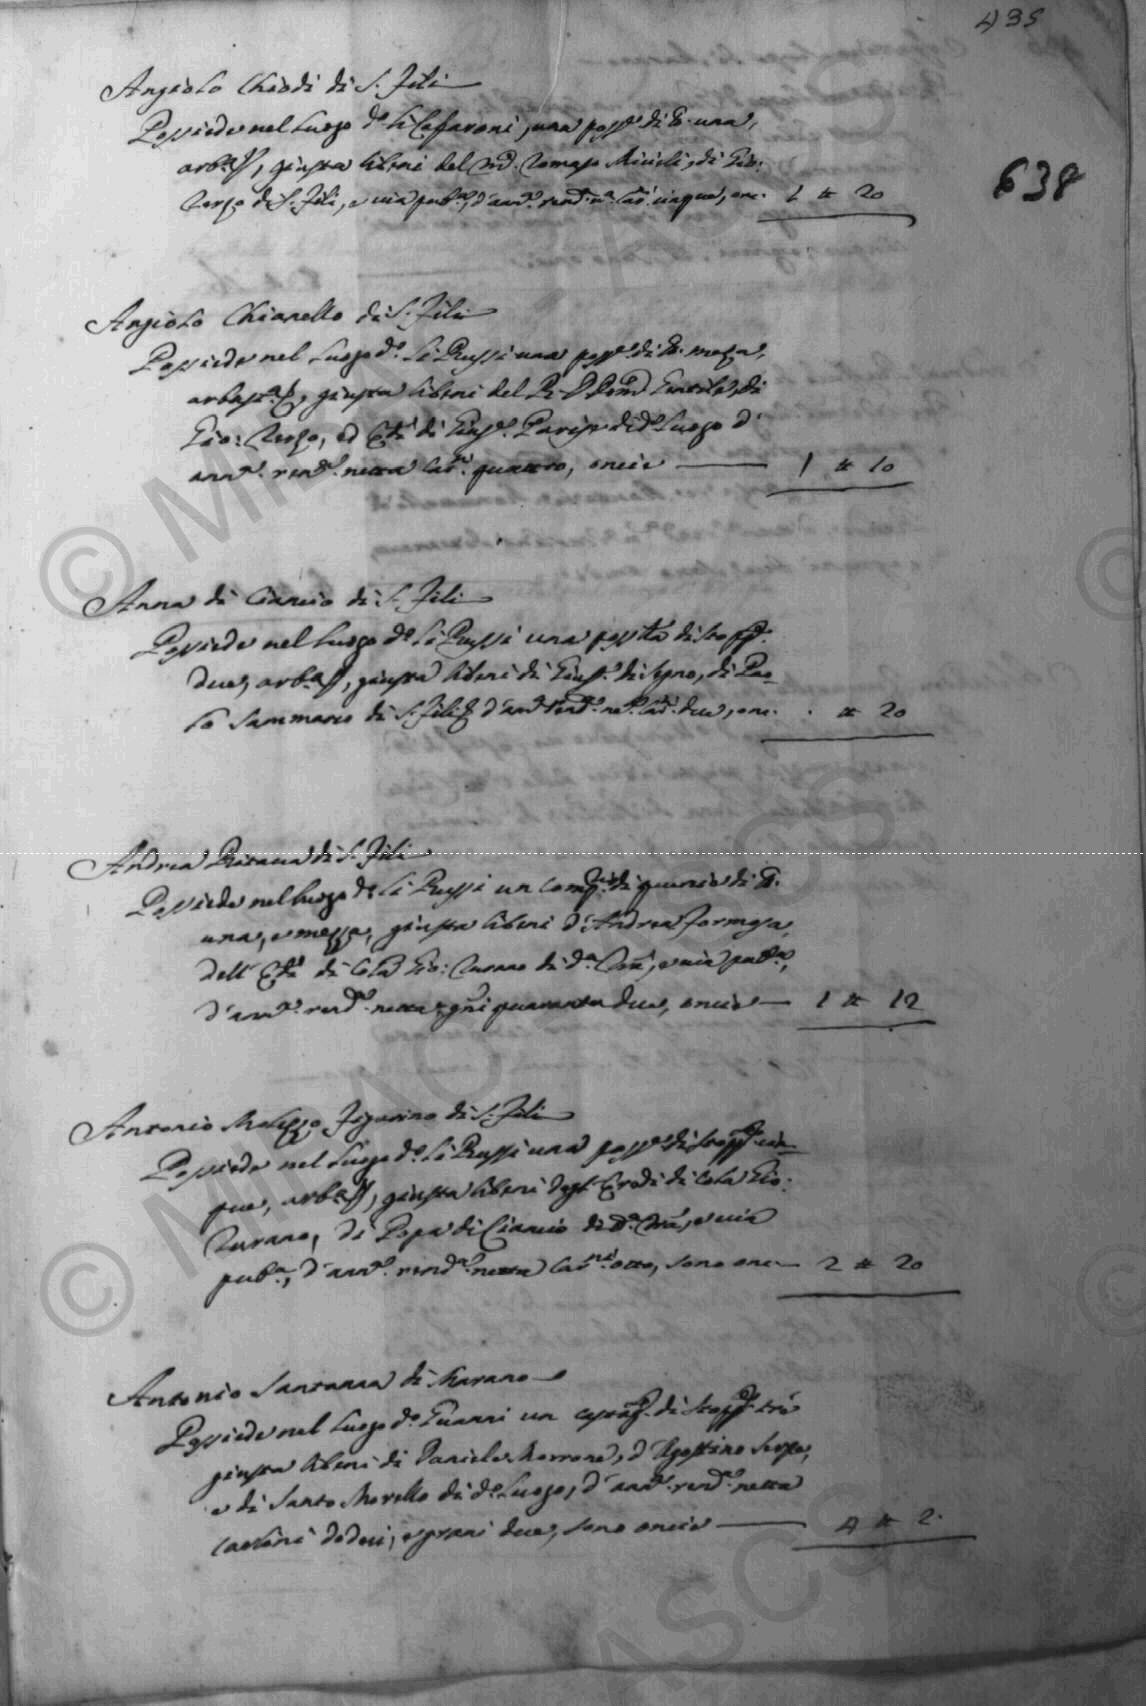 435
638
Angiolo Chiodi di S. Fili
Possiede nel Luogo d.o li Cafaroni, una poss.e di t. una,
arb.ta, giusta li beni del M.co Tomaso Miceli, di Gio:
Terzo di S. Fili, e via pub.a, d'ann.a rend.a n.a Car. cinque, onc. 1 # 20
Angiolo Chianello di S. Fili
Possiede nel Luogo d.o Li Russi una poss.e di t. meza,
arbust.a, giusta li beni del R. D. Gentile, di
Gio: Terzo, ed Er.di di Gius.e Parise di d.o Luogo d'
ann.a rend.a netta Car.ni quattro, oncie 1 # 10
Anna di Ciancio di S. Fili
Possiede nel Luogo d.o Li Russi una possita di stopp.
due, arb.ta, giusta li beni di Gius.e di Seno, di Pao-
lo Sammarco di S. Fili d'ann. rend.a ne.a Car. due, onc. . # 20
Andrea di S. Fili
Possiede nel luogo d.o Li Russi un comp. di quercie di t.
una, e mezza, giusta li beni d'Andrea Formosa,
dell' Er.di di Cola Gio: Turano di d.a Trã, e via pub.a,
d'ann.a rend.a netta g.ni quaranta due, oncie 1 # 12
Antonio Molezzo Figurino di S. Fili
Possiede nel Luogo d.o Li Russi una poss.e di stopp. cin-
que, arb.ta, giusta li beni degl'Eredi di Cola Gio:
Turano, di Popa di Ciancio di d.a Trã, e via
pub.a, d'ann.a rend.a netta Car.ni otto, sono onc. 2 # 20
Antonio Santanna di Marano
Possiede nel Luogo d.o Guanni un castag. di stopp. trè
giusta li beni di Daniele Morrone, d'Agostino Serpe,
e di Santo Morello di d.o Luogo, d'ann.a rend.a netta
Carlini dodeci, e grani due, sono oncie 4 # 2.
© MIBAC ASCS
© MIBAC ASCS
ASCS